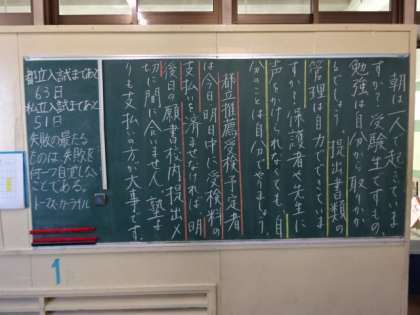 朝は一人で起きていま
すか？受験生ですもの、
勉強は自分から取りかか
るでしょう。提出書類の
管理は自力でできていま
すか？保護者や先生に
声をかけられなくても、自
分のことは自分でやりましょう。
都立推薦受検予定者
は今日明日中に受検料の
支払いを済ませなければ、明
後日の願書校内提出〆
切に間に合いません！塾よ
りも支払いの方が大事です。
都立入試まであと
63日
私立入試まであと
51日
失敗の最たる
ものは、失敗を
何一つ自覚しない
ことである。
トーマス・カーライル
1